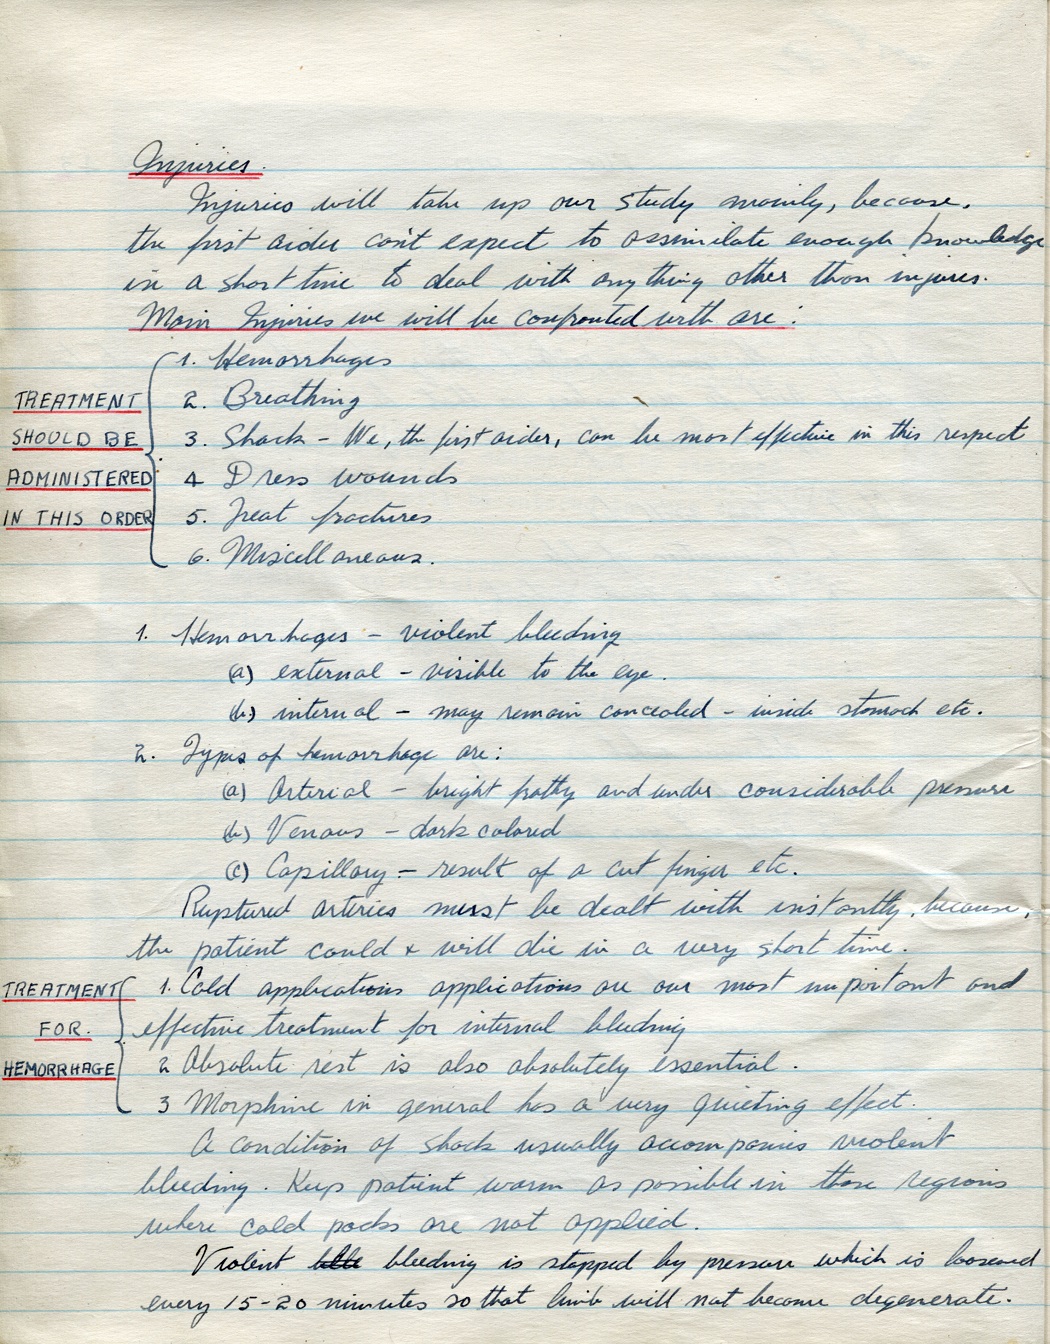 Injuries.
Injuries will take up our study mainly, because,
the first aider can't expect to assimilate enough knowledge
in a short time to deal with anything other than injures.
Main Injuries we will be confronted with are:
1. Hemorrhages
TREATMENT 2. Breathing
SHOULD BE 3. Shock - We, the first aider, can be most effective in this respect
ADMINISTERED 4 Dress wounds
IN THIS ORDER 5. Treat fractures
6. Miscellaneous.
1. Hemorrhages - violent bleeding
(a) external - visible to the eye.
(b) internal - may remain concealed - inside stomach etc.
2. Types of hemorrhage are:
(a) Arterial - bright frothy and under considerable pressure
(b) Venous - dark colored
(c) Capillary - result of a cut finger etc.
Ruptured arteries must be dealt with instantly, because,
the patient could & will die in a very short time.
TREATMENT 1. Cold applications applications are our most important and
FOR. effective treatment for internal bleeding
HEMORRHAGE 2 Absolute rest is also absolutely essential.
3 Morphine in general has a very quieting effect.
A condition of shock usually accompanies violent
bleeding. Keep patient warm as possible in those regions
where cold packs are not applied.
Violent bleeding is stopped by pressure which is loosened
every 15-20 minutes so that limb will not become degenerate.